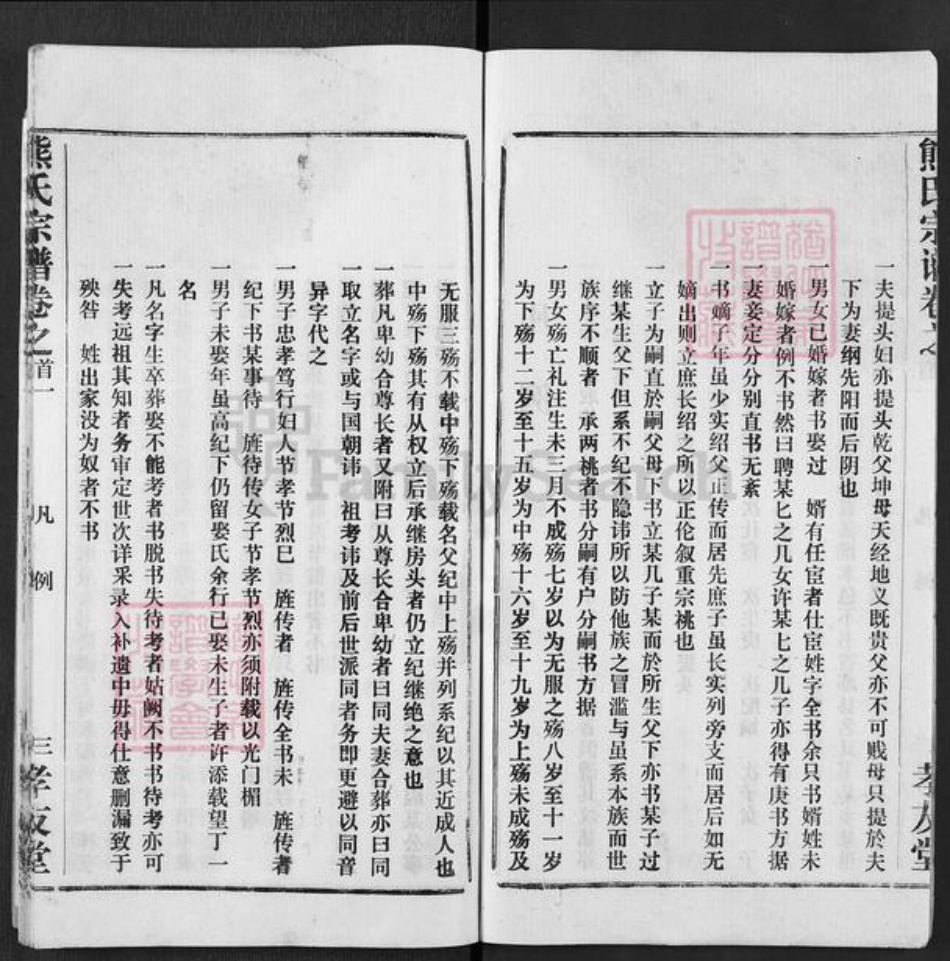 熊氏宗谱卷之首
一夫提头妇亦提头乾父坤母天经地义既贵父亦不可贱母只提於夫
下为妻纲先阳而后阴也
一男女已婚嫁者书娶过 婿有任宦者仕宦姓字全书余只书婿姓未
婚嫁者例不书然曰聘某匕之几女许某匕之几子亦得有庚书方据
一妻妾定分分别直书无紊
一书嫡子年虽少实绍父正传而居先庶子虽长实列旁支而居后如无
嫡出则立庶长绍之所以正伦叙重宗桃也
一立子为嗣直於嗣父母下书立某几子某而於所生父下亦书某子过
继某生父下但系不纪不隐讳所以防他族之冒滥与虽系本族而世
族序不顺者 承两桃者书分嗣有户分嗣书方据
一男女殇亡礼注生未三月不成殇七岁以为无服之殇八岁至十一岁
为下殇十二岁至十五岁为中殇十六岁至十九岁为上殇未成殇及
无服三殇不载中殇下殇载名父纪中上殇并列系纪以其近成人也
中殇下殇其有从权立后承继房头者仍立纪继绝之意也
一葬凡卑幼合尊长者又附曰从尊长合卑幼者曰同夫妻合葬亦曰同
一取立名字或与国朝讳 祖考讳及前后世派同者务即更避以同音
异字代之
一男子忠孝笃行妇人节孝节烈巳 旌传者 旌传全书未 旌传者
纪下书某事待 旌待传女子节孝节烈亦须附载以光门楣
一男子未娶年虽高纪下仍留娶氏余行已娶未生子者许添载望丁一
名
一凡名字生卒葬娶不能考者书脱书失待考者姑阙不书书待考亦可
一失考远祖其知者务审定世次详采录入补遗中毋得仕意删漏致于
殃咎 姓出家没为奴者不书
熊氏宗谱卷之首一 凡例 三 孝友堂
孝友堂
FamilySearch